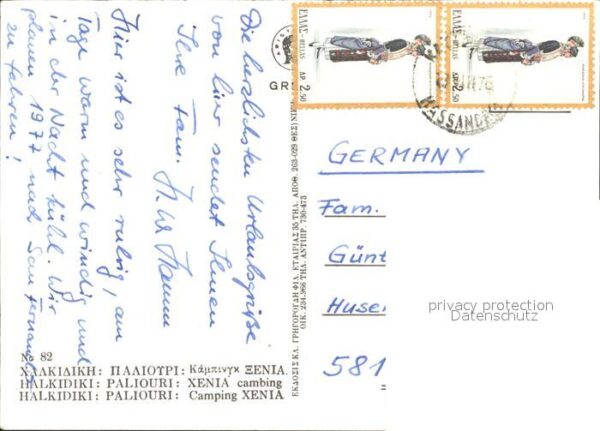 Die herzlichsten Urlaubsgrüße
von hier sendet Ihnen
Ihre Fam.
Hier ist es sehr ruhig, am
Tage warm und windig und
in der Nacht kühl. Wir
planen 1977 nach San Fernando
zu fahren!
No 82
ΧΑΛΚΙΔΙΚΗ: ΠΑΛΙΟΥΡΙ: Κάμπινγκ ΞΕΝΙΑ
HALKIDIKI: PALIOURI: XENIA cambing
HALKIDIKI: PALIOURI: Camping XENIA
ΕΚΔΟΣΙΣ ΚΛ. ΓΡΗΓΟΡΟΓΔΗ ΦΙΛ. ΕΤΑΙΡΙΑΣ 35 ΤΗΛ. ΑΠΟΘ. 263-029 ΘΕΣ)ΝΙΚΗ
ΟΙΚ. 234.966 ΤΗΛ. ΑΝΤΙΠΡ. 730-473
ΕΛΛΑΣ-HELLAS
ΔΡ 2.50
ΕΛΛΑΣ-HELLAS
ΔΡ 2.50
GR
76
KASSANDR
GERMANY
Fam.
Günt
Huse
581
privacy protection
Datenschutz